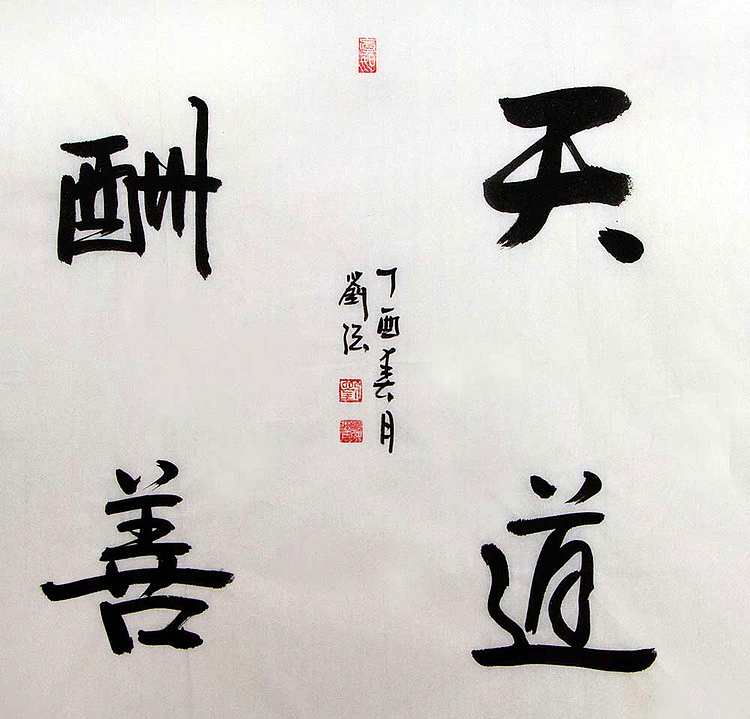 天道
酬善
丁酉春月
劉弦